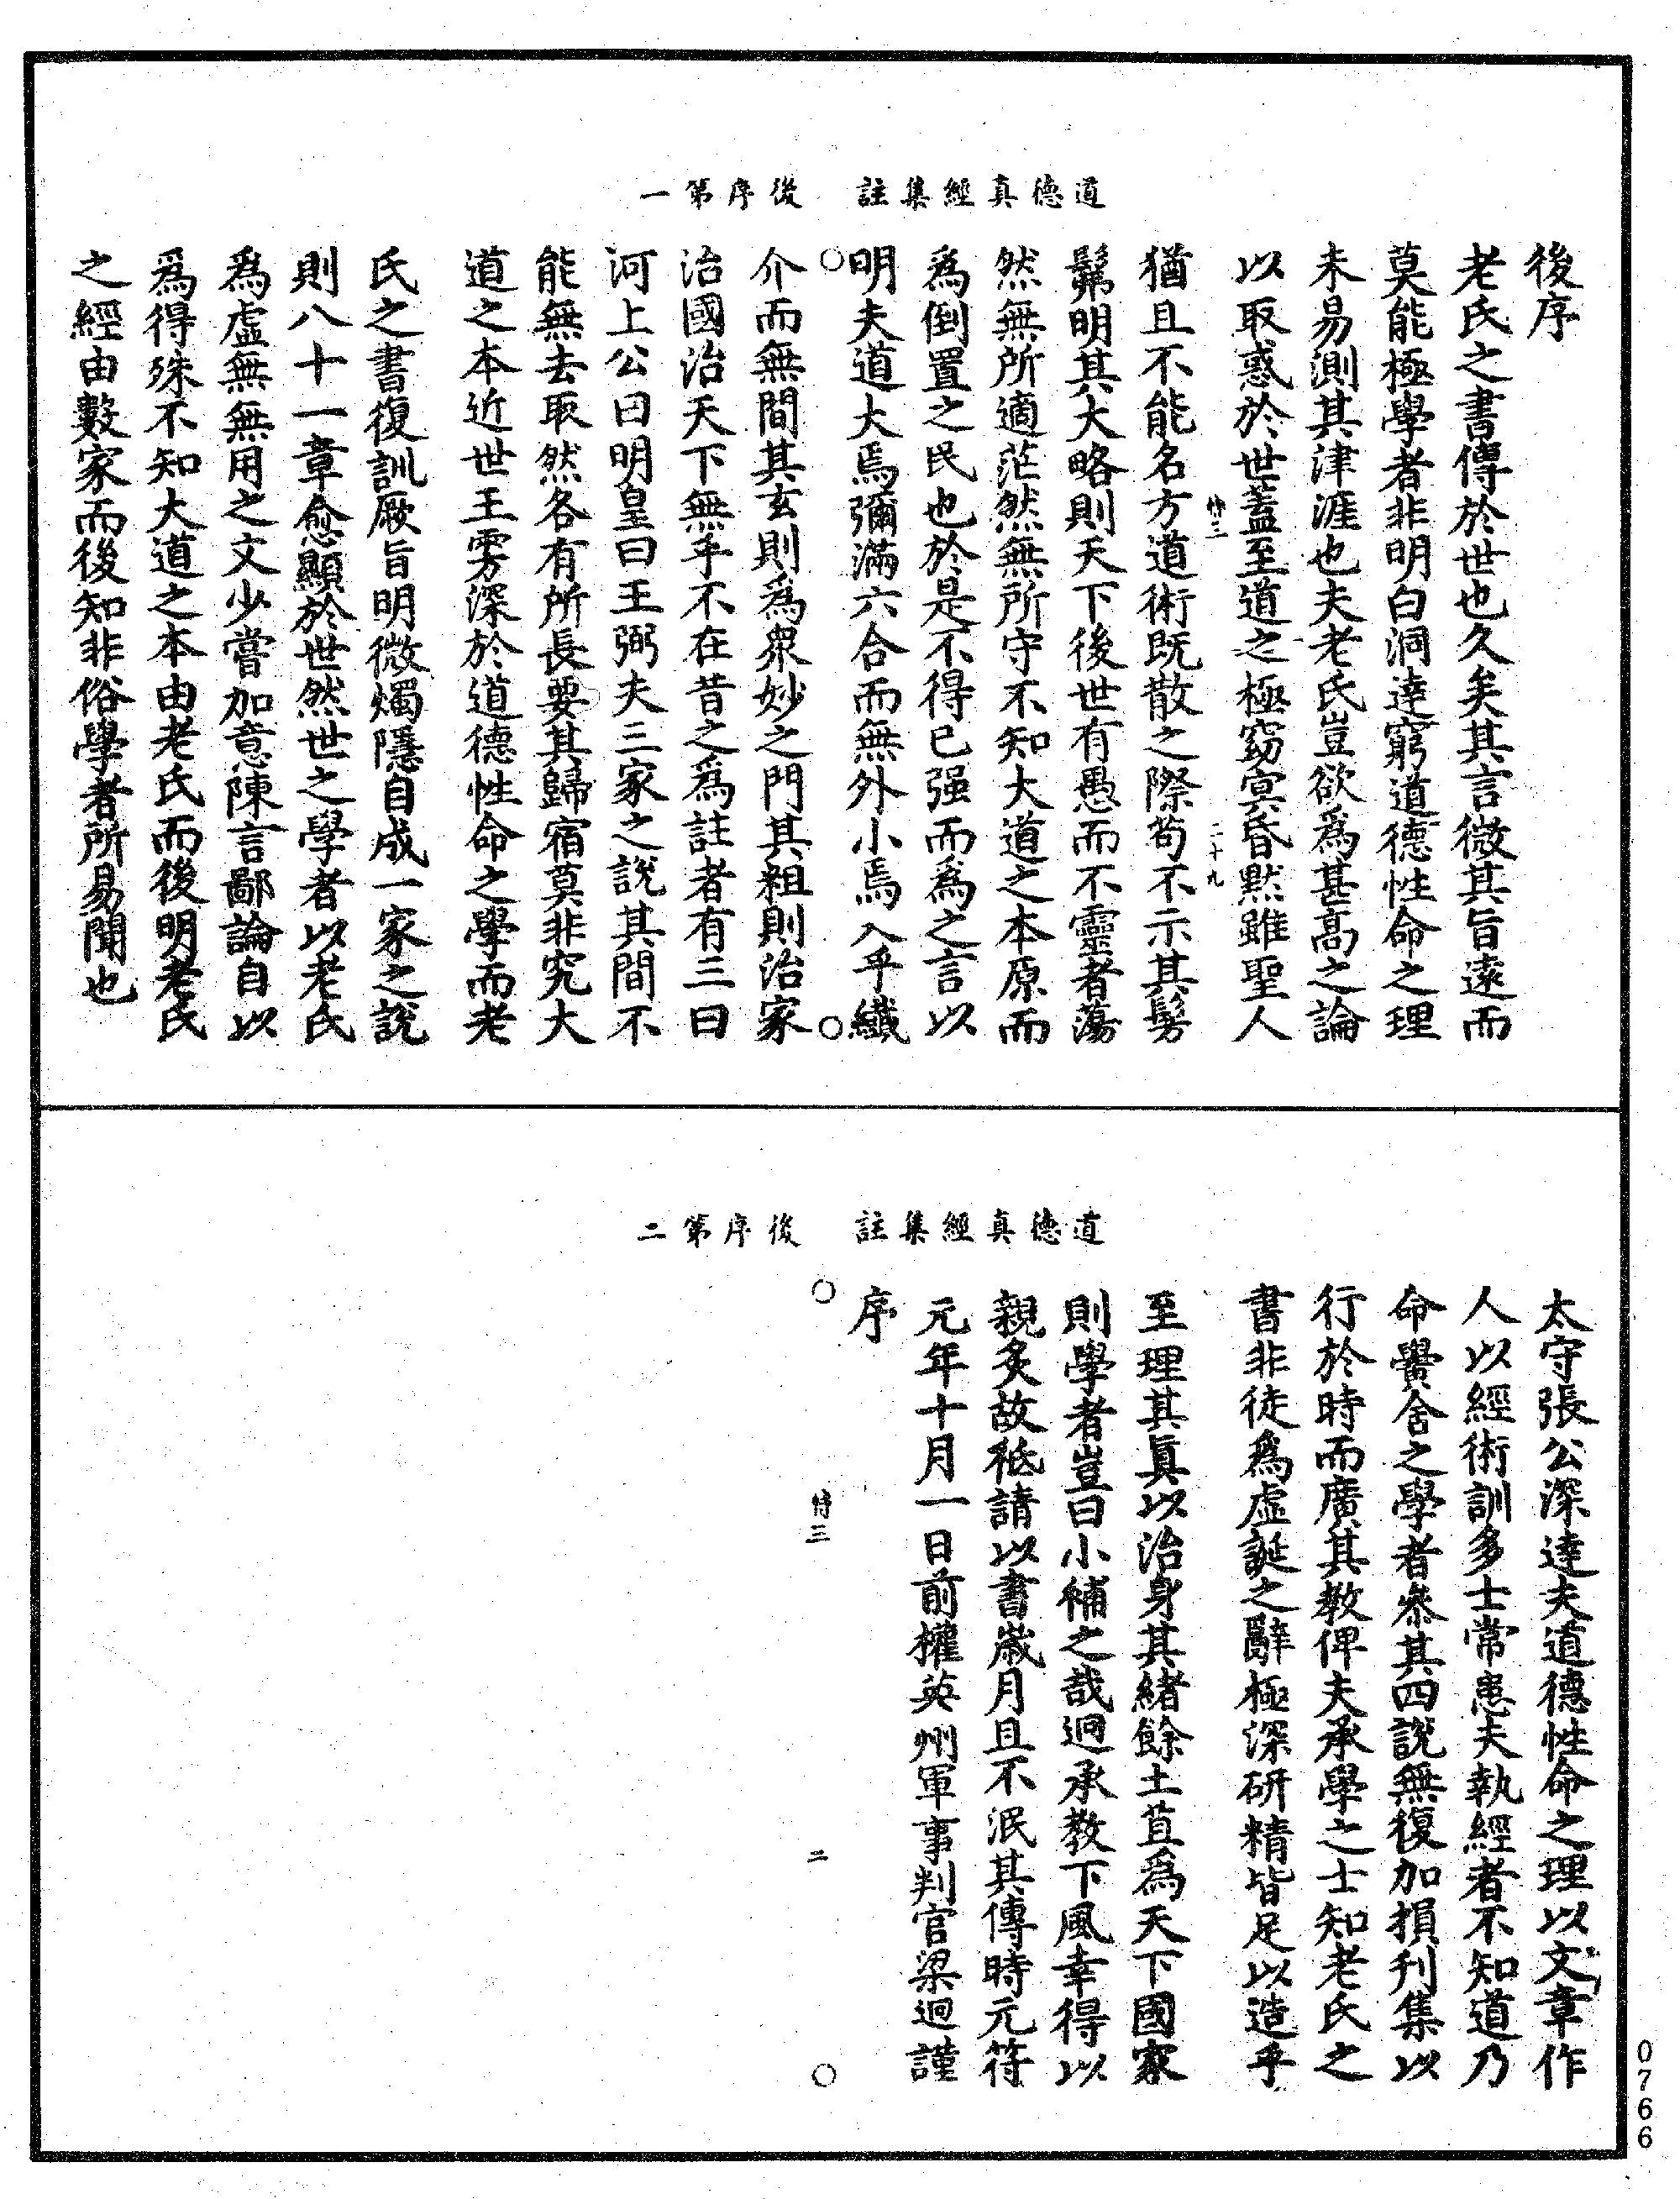 道德真經集註　後序第一
後序
老氏之書傳於世也久矣其言微其旨遠而
莫能極學者非明白洞達窮道德性命之理
未易測其津涯也夫老氏豈欲爲甚高之論
以取惑於世蓋至道之極窈冥昏黙雖聖人
二十九
猶且不能名方道術既散之際苟不示其髣
髴明其大略則天下後世有愚而不靈者蕩
然無所適茫然無所守不知大道之本原而
爲倒置之民也於是不得已强而爲之言以
明夫道大焉彌滿六合而無外小焉入乎纖
介而無間其玄則爲衆妙之門其粗則治家
治國治天下無乎不在昔之爲註者有三曰
河上公曰明皇曰王弼夫三家之說其間不
能無去取然各有所長要其歸宿莫非究大
道之本近世王雱深於道德性命之學而老
氏之書復訓厥旨明微燭隱自成一家之說
則八十一章愈顯於世然世之學者以老氏
爲虛無無用之文少嘗加意陳言鄙論自以
爲得殊不知大道之本由老氏而後明老氏
之經由數家而後知非俗學者所易聞也
道德真經集註　後序第二
太守張公深達夫道德性命之理以文章作
人以經術訓多士常患夫執經者不知道乃
命黌舍之學者叅其四說無復加損刋集以
行於時而廣其教俾夫承學之士知老氏之
書非徒爲虛誕之辭極深研精皆足以造乎
至理其眞以治身其緒餘土苴爲天下國家
則學者豈曰小補之哉迥承教下風幸得以
親炙故秪請以書歲月且不泯其傳時元符
元年十月一日前權英州軍事判官梁迥謹
序
二
0766